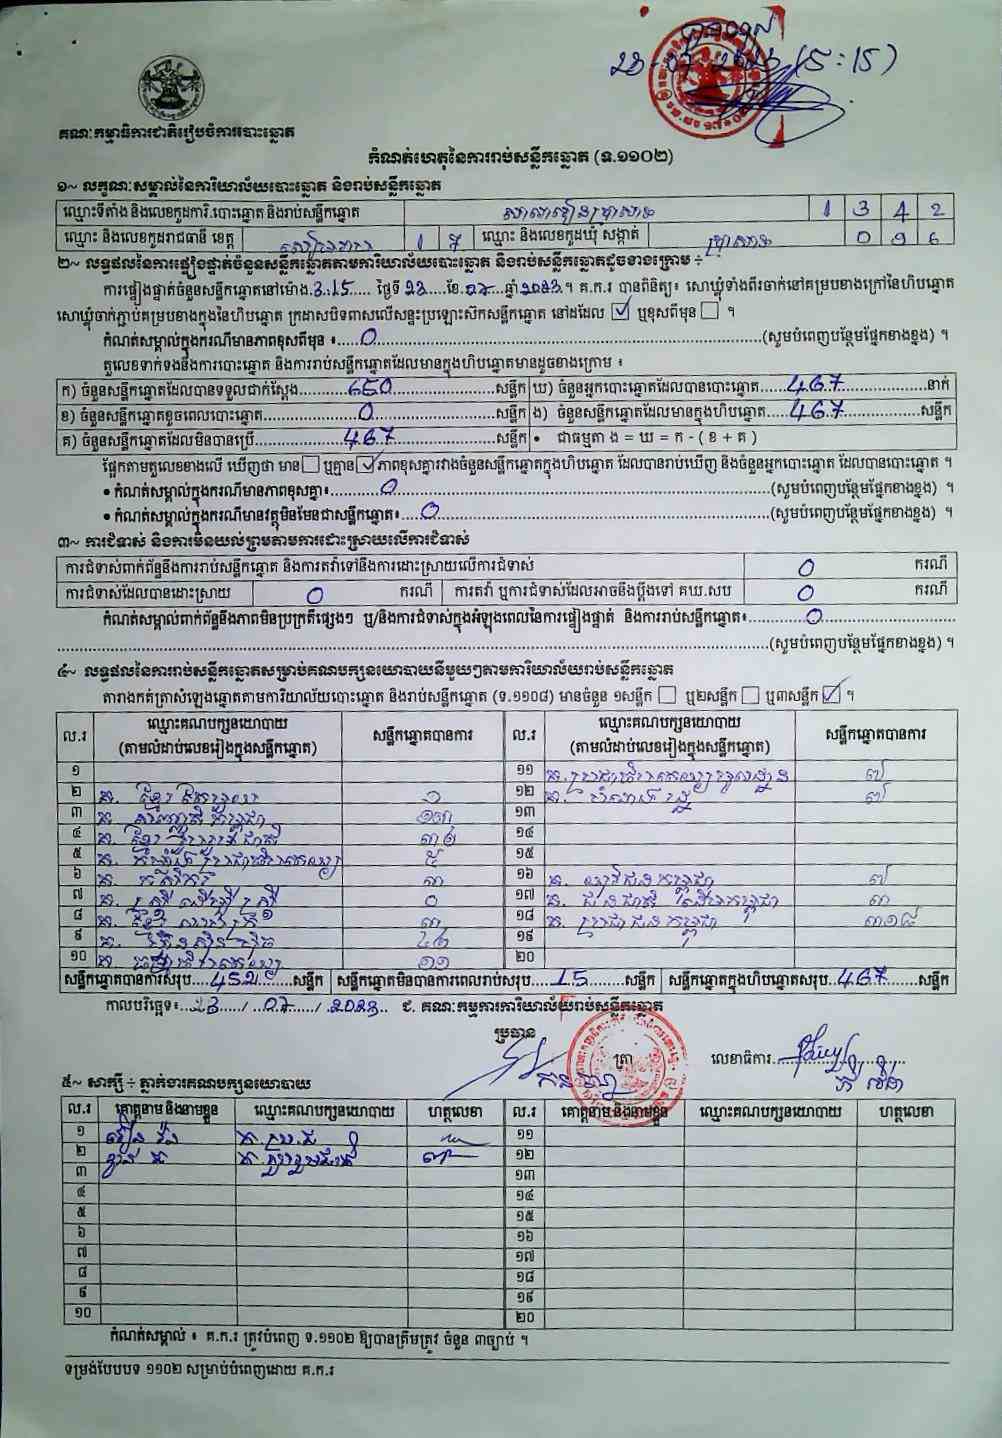 23-07-2023 (5:15)
គណៈកម្មាធិការជាតិរៀបចំការបោះឆ្នោត
កំណត់ហេតុនៃការរាប់សន្លឹកឆ្នោត (ទ.១១០២)
១~ លក្ខណៈសម្គាល់នៃការិយាល័យបោះឆ្នោត និងរាប់សន្លឹកឆ្នោត
ឈ្មោះទីតាំង និងលេខកូដការិ.បោះឆ្នោត និងរាប់សន្លឹកឆ្នោត សាលារៀនប្រាសាទ 1 3 4 2
ឈ្មោះ និងលេខកូដរាជធានី ខេត្ត សៀមរាប 1 7 ឈ្មោះ និងលេខកូដឃុំ សង្កាត់ ប្រាសាទ 0 9 6
២~ លទ្ធផលនៃការផ្ទៀងផ្ទាត់ចំនួនសន្លឹកឆ្នោតតាមការិយាល័យបោះឆ្នោត និងរាប់សន្លឹកឆ្នោតដូចខាងក្រោម ÷
ការផ្ទៀងផ្ទាត់ចំនួនសន្លឹកឆ្នោតនៅម៉ោង 3.15 ថ្ងៃទី 23 ខែ 07 ឆ្នាំ 2023 ។ គ.ក.រ បានពិនិត្យ៖ សោឃ្លុំទាំងពីរចាក់នៅគម្របខាងក្រៅនៃហិបឆ្នោត
សោឃ្លុំចាក់ភ្ជាប់គម្របខាងក្នុងនៃហិបឆ្នោត ក្រដាសបិទពាសលើសន្ទះប្រឡោះស៊កសន្លឹកឆ្នោត នៅដដែល ☑ ឬខុសពីមុន ☐ ។
កំណត់សម្គាល់ក្នុងករណីមានភាពខុសពីមុន ៖ 0 (សូមបំពេញបន្ថែមផ្នែកខាងខ្នង) ។
តួលេខទាក់ទងនឹងការបោះឆ្នោត និងការរាប់សន្លឹកឆ្នោតដែលមានក្នុងហិបឆ្នោតមានដូចខាងក្រោម ៖
ក) ចំនួនសន្លឹកឆ្នោតដែលបានទទួលជាក់ស្ដែង 650 សន្លឹក ឃ) ចំនួនអ្នកបោះឆ្នោតដែលបានបោះឆ្នោត 467 នាក់
ខ) ចំនួនសន្លឹកឆ្នោតខូចពេលបោះឆ្នោត 0 សន្លឹក ង) ចំនួនសន្លឹកឆ្នោតដែលមានក្នុងហិបឆ្នោត 467 សន្លឹក
គ) ចំនួនសន្លឹកឆ្នោតដែលមិនបានប្រើ 467 សន្លឹក • ជាធម្មតា ង = ឃ = ក - ( ខ + គ )
ផ្អែកតាមតួលេខខាងលើ ឃើញថា មាន ☐ ឬគ្មាន ☑ ភាពខុសគ្នារវាងចំនួនសន្លឹកឆ្នោតក្នុងហិបឆ្នោត ដែលបានរាប់ឃើញ និងចំនួនអ្នកបោះឆ្នោត ដែលបានបោះឆ្នោត ។
• កំណត់សម្គាល់ក្នុងករណីមានភាពខុសគ្នា៖ 0 (សូមបំពេញបន្ថែមផ្នែកខាងខ្នង) ។
• កំណត់សម្គាល់ក្នុងករណីមានវត្ថុមិនមែនជាសន្លឹកឆ្នោត៖ 0 (សូមបំពេញបន្ថែមផ្នែកខាងខ្នង) ។
៣~ ការជំទាស់ និងការមិនយល់ព្រមតាមការដោះស្រាយលើការជំទាស់
ការជំទាស់ពាក់ព័ន្ធនឹងការរាប់សន្លឹកឆ្នោត និងការតវ៉ាទៅនឹងការដោះស្រាយលើការជំទាស់ 0 ករណី
ការជំទាស់ដែលបានដោះស្រាយ 0 ករណី ការតវ៉ា ឬការជំទាស់ដែលអាចនឹងប្ដឹងទៅ គឃ.សប 0 ករណី
កំណត់សម្គាល់ពាក់ព័ន្ធនឹងភាពមិនប្រក្រតីផ្សេងៗ ឬ/និងការជំទាស់ក្នុងអំឡុងពេលនៃការផ្ទៀងផ្ទាត់ និងការរាប់សន្លឹកឆ្នោត៖ 0
(សូមបំពេញបន្ថែមផ្នែកខាងខ្នង) ។
៤~ លទ្ធផលនៃការរាប់សន្លឹកឆ្នោតសម្រាប់គណបក្សនយោបាយនីមួយៗតាមការិយាល័យរាប់សន្លឹកឆ្នោត
តារាងកត់ត្រាសំឡេងឆ្នោតតាមការិយាល័យបោះឆ្នោត និងរាប់សន្លឹកឆ្នោត (ទ.១១០៨) មានចំនួន ១សន្លឹក ☐ ឬ២សន្លឹក ☐ ឬ៣សន្លឹក ☑ ។
ល.រ ឈ្មោះគណបក្សនយោបាយ (តាមលំដាប់លេខរៀងក្នុងសន្លឹកឆ្នោត) សន្លឹកឆ្នោតបានការ ល.រ ឈ្មោះគណបក្សនយោបាយ (តាមលំដាប់លេខរៀងក្នុងសន្លឹកឆ្នោត) សន្លឹកឆ្នោតបានការ
១ ១១ ៧
២ គ. ខ្មែរ ១ ១២ គ. ៧
៣ គ. ១៣
៤ គ. ខ្មែរ ១៤
៥ គ. ៥ ១៥
៦ គ. ៣ ១៦ គ. យុវជនកម្ពុជា ៧
៧ គ. 0 ១៧ គ. ជនជាតិដើមកម្ពុជា ៣
៨ គ. ខ្មែរ ៣ ១៨ គ. ប្រជាជនកម្ពុជា ៣១៨
៩ គ. ហ្វ៊ុនស៊ិនប៉ិច ១៩
១០ គ. ១១ ២០
សន្លឹកឆ្នោតបានការសរុប 452 សន្លឹក សន្លឹកឆ្នោតមិនបានការពេលរាប់សរុប 15 សន្លឹក សន្លឹកឆ្នោតក្នុងហិបឆ្នោតសរុប 467 សន្លឹក
កាលបរិច្ឆេទ៖ 23 / 07 / 2023 ជ. គណៈកម្មការការិយាល័យរាប់សន្លឹកឆ្នោត
ប្រធាន ត្រា លេខាធិការ
៥~ សាក្សី ÷ ភ្នាក់ងារគណបក្សនយោបាយ
ល.រ គោត្តនាម និងនាមខ្លួន ឈ្មោះគណបក្សនយោបាយ ហត្ថលេខា ល.រ គោត្តនាម និងនាមខ្លួន ឈ្មោះគណបក្សនយោបាយ ហត្ថលេខា
១ គ.ប្រ.ជ ១១
២ គ. ១២
៣ ១៣
៤ ១៤
៥ ១៥
៦ ១៦
៧ ១៧
៨ ១៨
៩ ១៩
១០ ២០
កំណត់សម្គាល់ ៖ គ.ក.រ ត្រូវបំពេញ ទ.១១០២ ឱ្យបានត្រឹមត្រូវ ចំនួន ៣ច្បាប់ ។
ទម្រង់បែបបទ ១១០២ សម្រាប់បំពេញដោយ គ.ក.រ